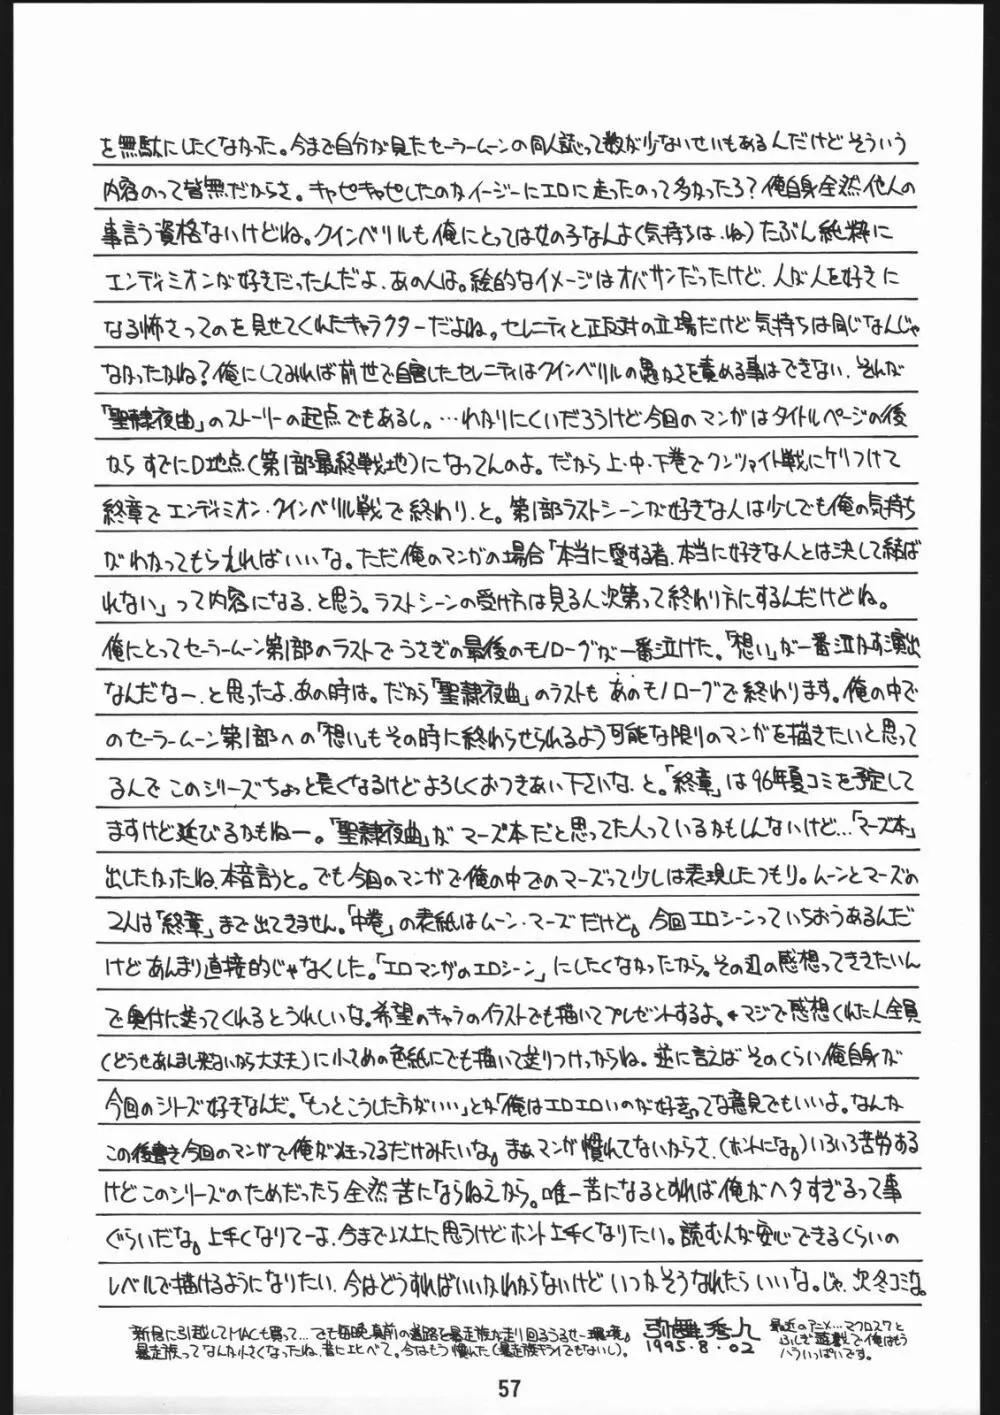 を無駄にしたくなかった。今まで自分が見たセーラームーンの同人誌って数が少ないせいもあるんだけどそういう
内容のって皆無だからさ。キャピキャピしたのかイージーにエロに走ったのって多かったろ?俺自身全然他人の
事言う資格ないけどね。クインベリルも俺にとっては女の子なんよ(気持ちは、ね)たぶん純粋に
エンディミオンが好きだったんだよ、あの人は。絵的なイメージはオバサンだったけど、人が人を好きに
なる怖さってのを見せてくれたキャラクターだよね。セレニティと正反対の立場だけど気持ちは同じなんじゃ
なかったかね?俺にしてみれば前世で自害したセレニティはクインベリルの愚かさを責める事はできない、それが
「聖隷夜曲」のストーリーの起点でもあるし。…わかりにくいだろうけど今回のマンガはタイトルページの後
ならすでにD地点(第1部最終戦地)になってんのよ。だから上・中・下巻でクンツァイト戦にケリつけて
終章でエンディミオン・クインベリル戦で終わり、と。第1部ラストシーンが好きな人は少しでも俺の気持ち
がわかってもらえればいいな。ただ俺のマンガの場合「本当に愛する者、本当に好きな人とは決して結ば
れない」って内容になる、と思う。ラストシーンの受け方は見る人次第って終わり方にするんだけどね。
俺にとってセーラームーン第1部のラストでうさぎの最後のモノローグが一番泣けた。「想い」が一番泣かす演出
なんだなー、と思ったよ、あの時は。だから「聖隷夜曲」のラストもあのモノローグで終わります。俺の中で
のセーラームーン第1部への「想い」もその時に終わらせられるよう可能な限りのマンガを描きたいと思って
るんでこのシリーズちょっと長くなるけどよろしくおつきあい下さいな、と。「終章」は96年夏コミを予定して
ますけど延びるかもねー。「聖隷夜曲」がマーズ本だと思ってた人っているかもしんないけど…「マーズ本」
出したかったね、本音言うと。でも今回のマンガで俺の中でのマーズって少しは表現したつもり。ムーンとマーズの
2人は「終章」まで出てきません。「中巻」の表紙はムーン・マーズだけど。今回エロシーンっていちおうあるんだ
けどあんまり直接的じゃなくした。「エロマンガのエロシーン」にしたくなかったから。その辺の感想ってききたいん
で奥付に送ってくれるとうれしいな。希望のキャラのイラストでも描いてプレゼントするよ。←マジで感想くれた人全員
(どうせあんまし来ないから大丈夫)に小さめの色紙にでも描いて送りつけっからね。逆に言えばそのくらい俺自身が
今回のシリーズ好きなんだ。「もっとこうした方がいい」とか「俺はエロエロいのが好き」ってな意見でもいいよ。なんか
この後書き今回のマンガで俺が狂ってるだけみたいな。まぁマンガ慣れてないからさ、(ホントにな。)いろいろ苦労する
けどこのシリーズのためだったら全然苦にならねえから。唯一苦になるとすれば俺がヘタすぎるって事
ぐらいだな。上手くなりてーよ、今まで以上に思うけどホント上手くなりたい。読む人が安心できるくらいの
レベルで描けるようになりたい、今はどうすればいいかわからないけどいつかそうなれたらいいな。じゃ、次冬コミな。
新居に引越してMACも買って…でも毎晩真前の道路を暴走族が走り回るうるせー環境。
暴走族ってなんか小さくなったね、昔に比べて。今はもう慣れた(暴走族ギライでもないし)。
弥舞秀人
1995.8.02
最近のアニメ…マクロス7と
ふしぎ遊戯で俺はもう
ハラいっぱいです。
57